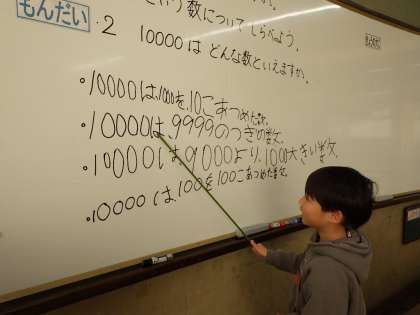 という数についてしらべよう。
もんだい
・2 10000は どんな数といえますか。
・10000は、1000を、10こあつめた数。
・10000は、9999のつぎの数。
・10000は、9000より、1000大きい数。
・10000は、100を100こあつめた数。